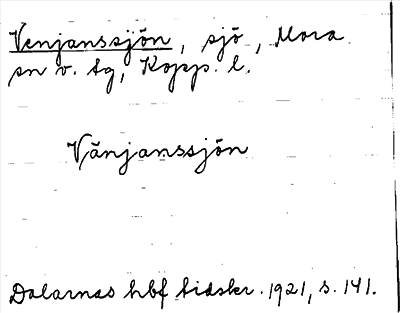 Venjanssjön, sjö, Mora
sn v. tg, Kopp. l.
Vänjanssjön
Dalarnas hbf tidskr. 1921, s. 141.